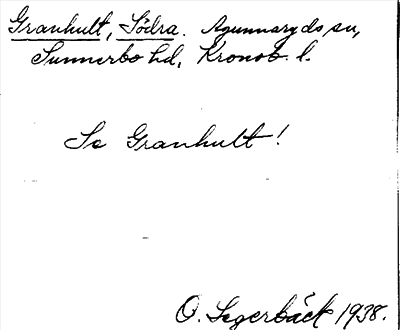 Granhult, Södra. Agunnaryds sn,
Sunnerbo hd, Kronob. l.
Se Granhult!
O. Segerbäck 1938.